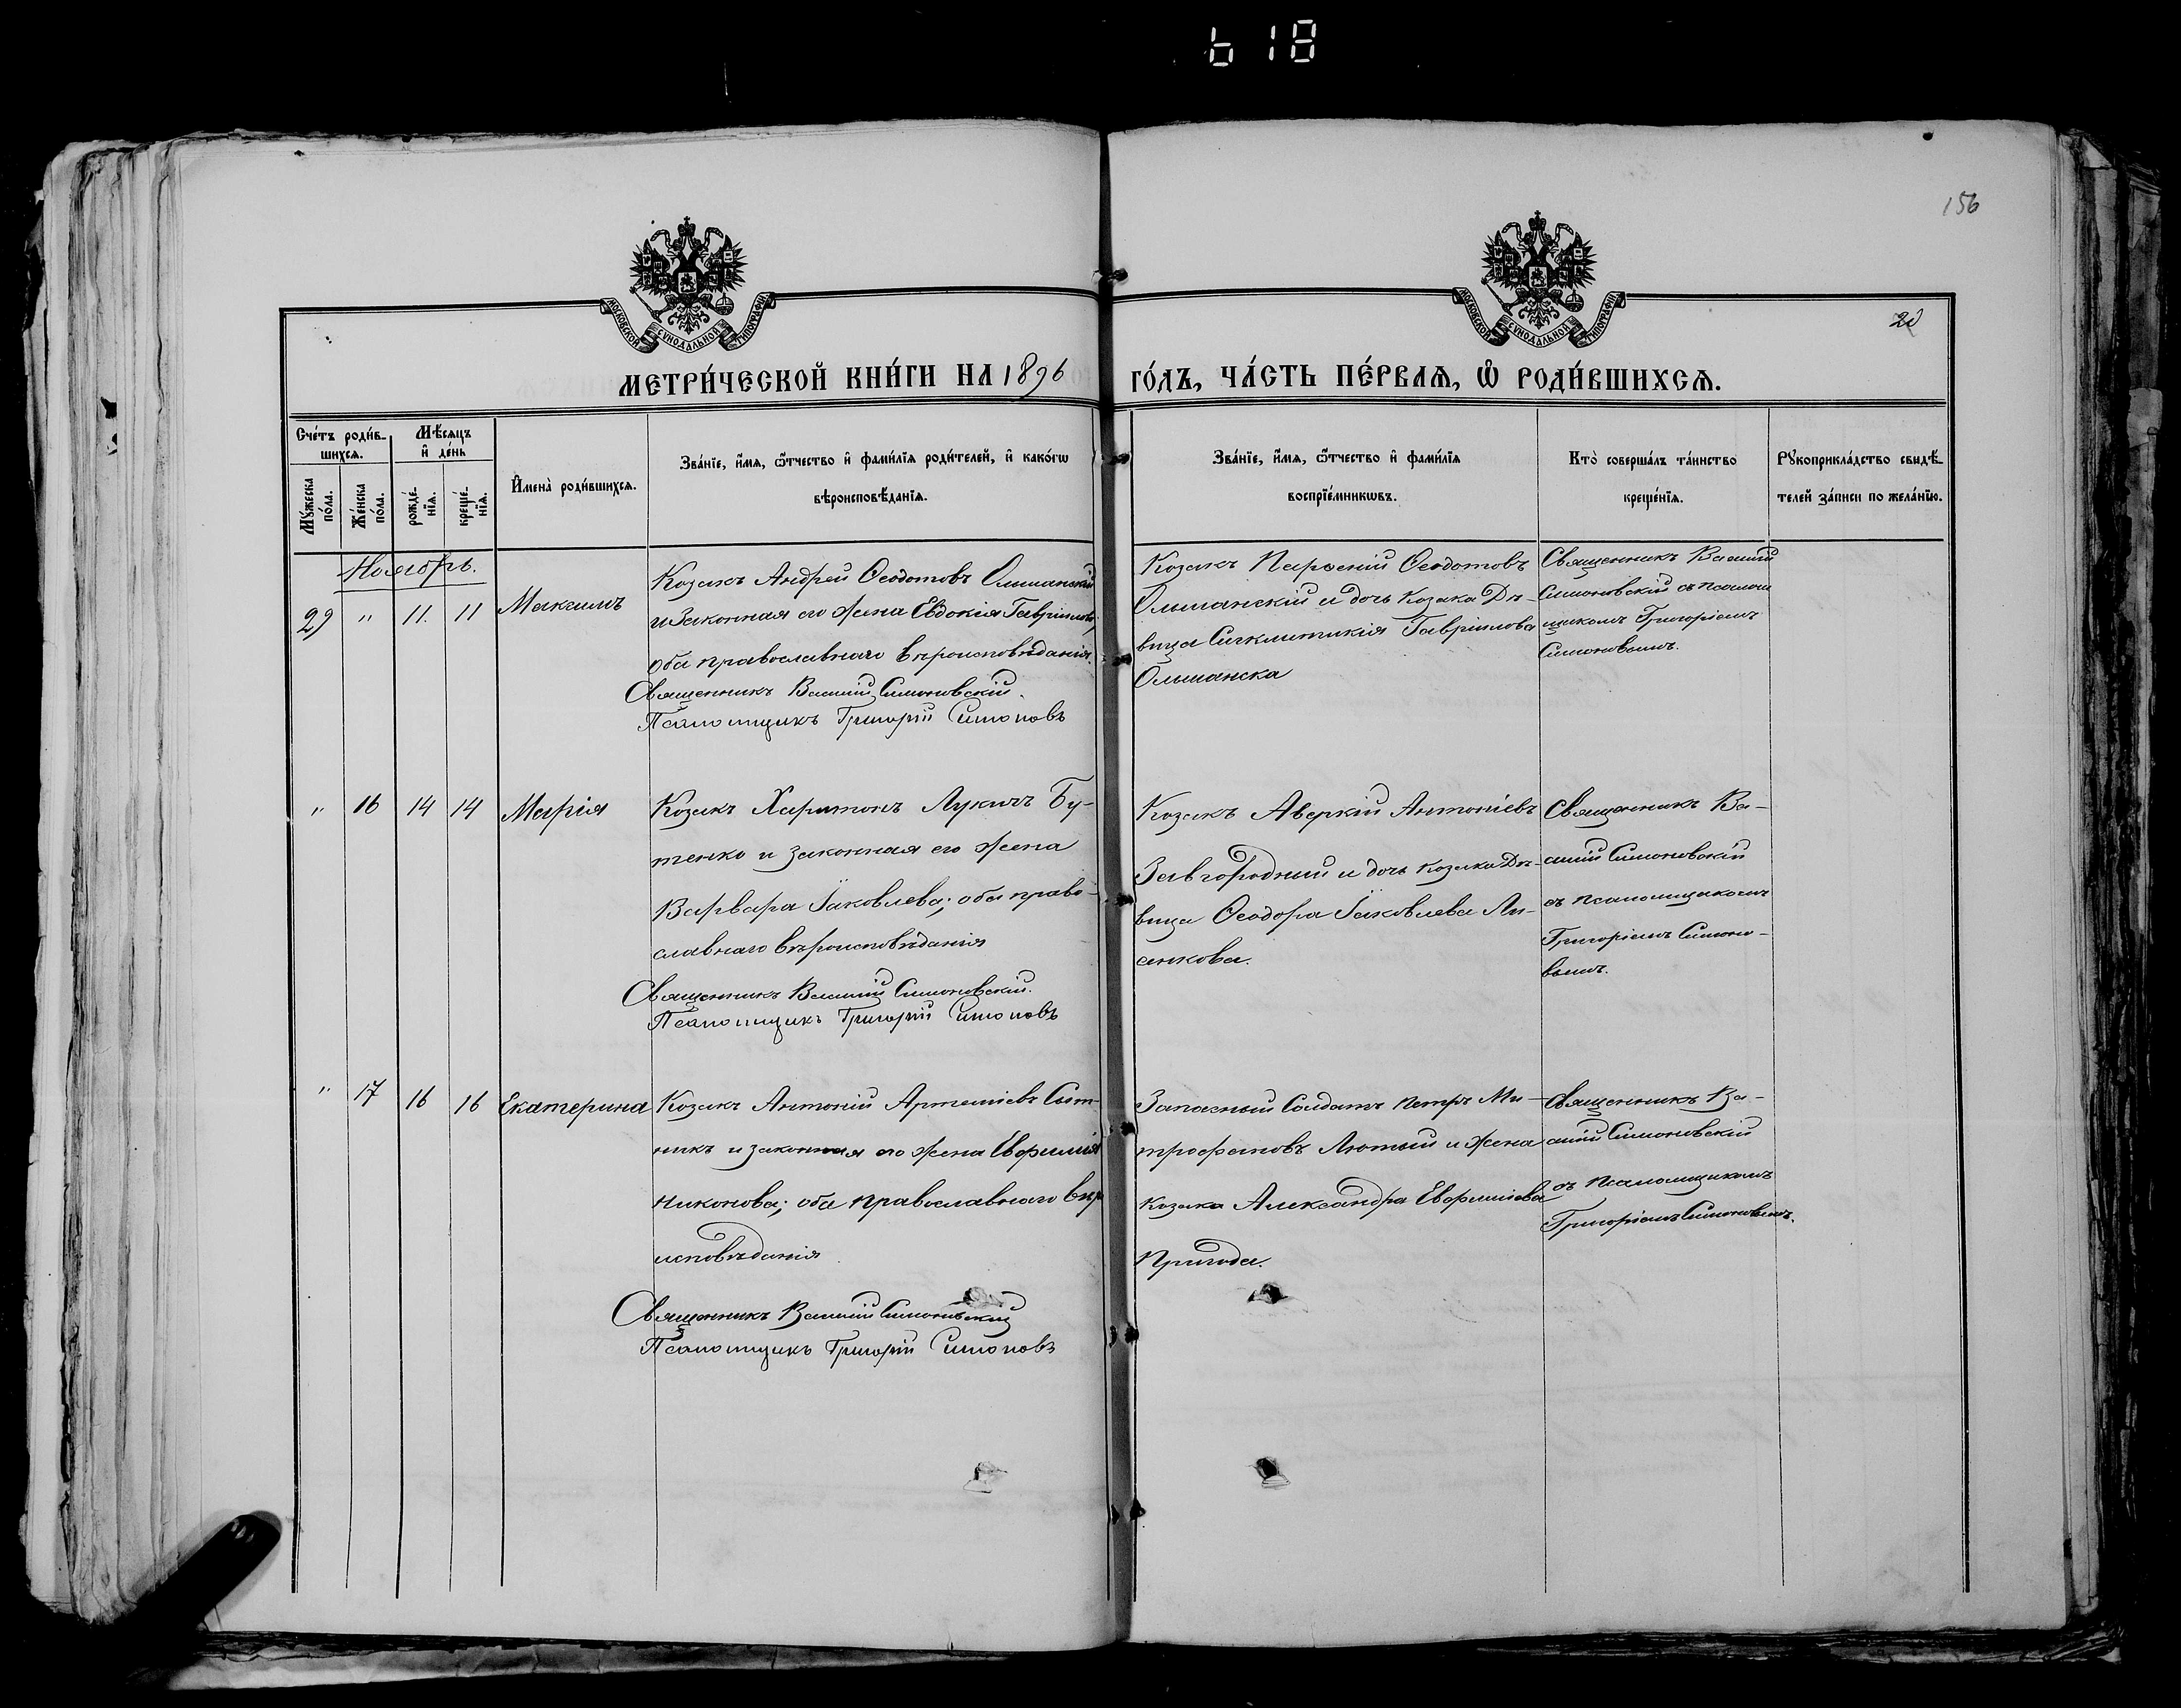 618
156
МОСКОВСКОЙ СѴНОДАЛЬНОЙ ТИПОГРАФІИ
МОСКОВСКОЙ СѴНОДАЛЬНОЙ ТИПОГРАФІИ
20
МЕТРИ́ЧЕСКОЙ КНИ́ГИ НА 1896 ГО́ДЪ, ЧА́СТЬ ПЕ́РВАѦ, Ѽ РОДИ́ВШИХСѦ.
Сче́тъ роди́в-
шихсѧ.
Мѣ́сѧцъ
и҆ де́нь
Мꙋ́жеска
по́ла.
Же́нска
по́ла.
рожде́-
нїѧ.
креще́-
нїѧ.
И҆мена̀ роди́вшихсѧ.
Зва́нїе, и҆́мѧ, ѻ҆́тчество и҆ фами́лїѧ роди́телей, и҆ како́гѡ
вѣроисповѣ́данїѧ.
Зва́нїе, и҆́мѧ, ѻ҆́тчество и҆ фами́лїѧ
воспрїе́мникѡвъ.
Кто̀ соверша́лъ та́инство
креще́нїѧ.
Рꙋкоприкла́дство свидѣ́-
телей за́писи по жела́нїю.
Ноябрь.
29 " 11. 11 Максимъ
Козакъ Андрей Ѳеодотовъ Ольшанскій
и законная его жена Евдокія Гавріилова;
оба православнаго вѣроисповѣданія.
Священникъ Василій Симоновскій.
Псаломщикъ Григорій Симоновъ
Козакъ Парѳеній Ѳеодотовъ
Ольшанскій и дочь козака Дѣ-
вица Синклитикія Гавріилова
Ольшанска
Священникъ Василій
Симоновскій съ псалом
щикомъ Григоріемъ
Симоновымъ.
" 16 14 14 Марія
Козакъ Харитонъ Лукичъ Бу-
тенко и законная его жена
Варвара Іаковлева; оба право-
славнаго вѣроисповѣданія
Священникъ Василій Симоновскій.
Псаломщикъ Григорій Симоновъ
Козакъ Аверкій Антоніевъ
Завгородний и дочь козака Дѣ-
вица Ѳеодора Іаковлева Ли-
сенкова.
Священникъ Ва-
силій Симоновскій
съ псаломщикомъ
Григоріемъ Симоно-
вымъ.
" 17 16 16 Екатерина
Козакъ Антоній Артеміевъ Сыт-
никъ и законная его жена Евфимія
Никонова; оба православнаго вѣро
исповѣданія
Священникъ Василій Симоновскій
Псаломщикъ Григорій Симоновъ
Запасный Солдатъ Петръ Ми-
трофановъ Лютый и жена
козака Александра Евфиміева
Пригода.
Священникъ Ва-
силій Симоновскій
съ псаломщикомъ
Григоріемъ Симоновымъ.